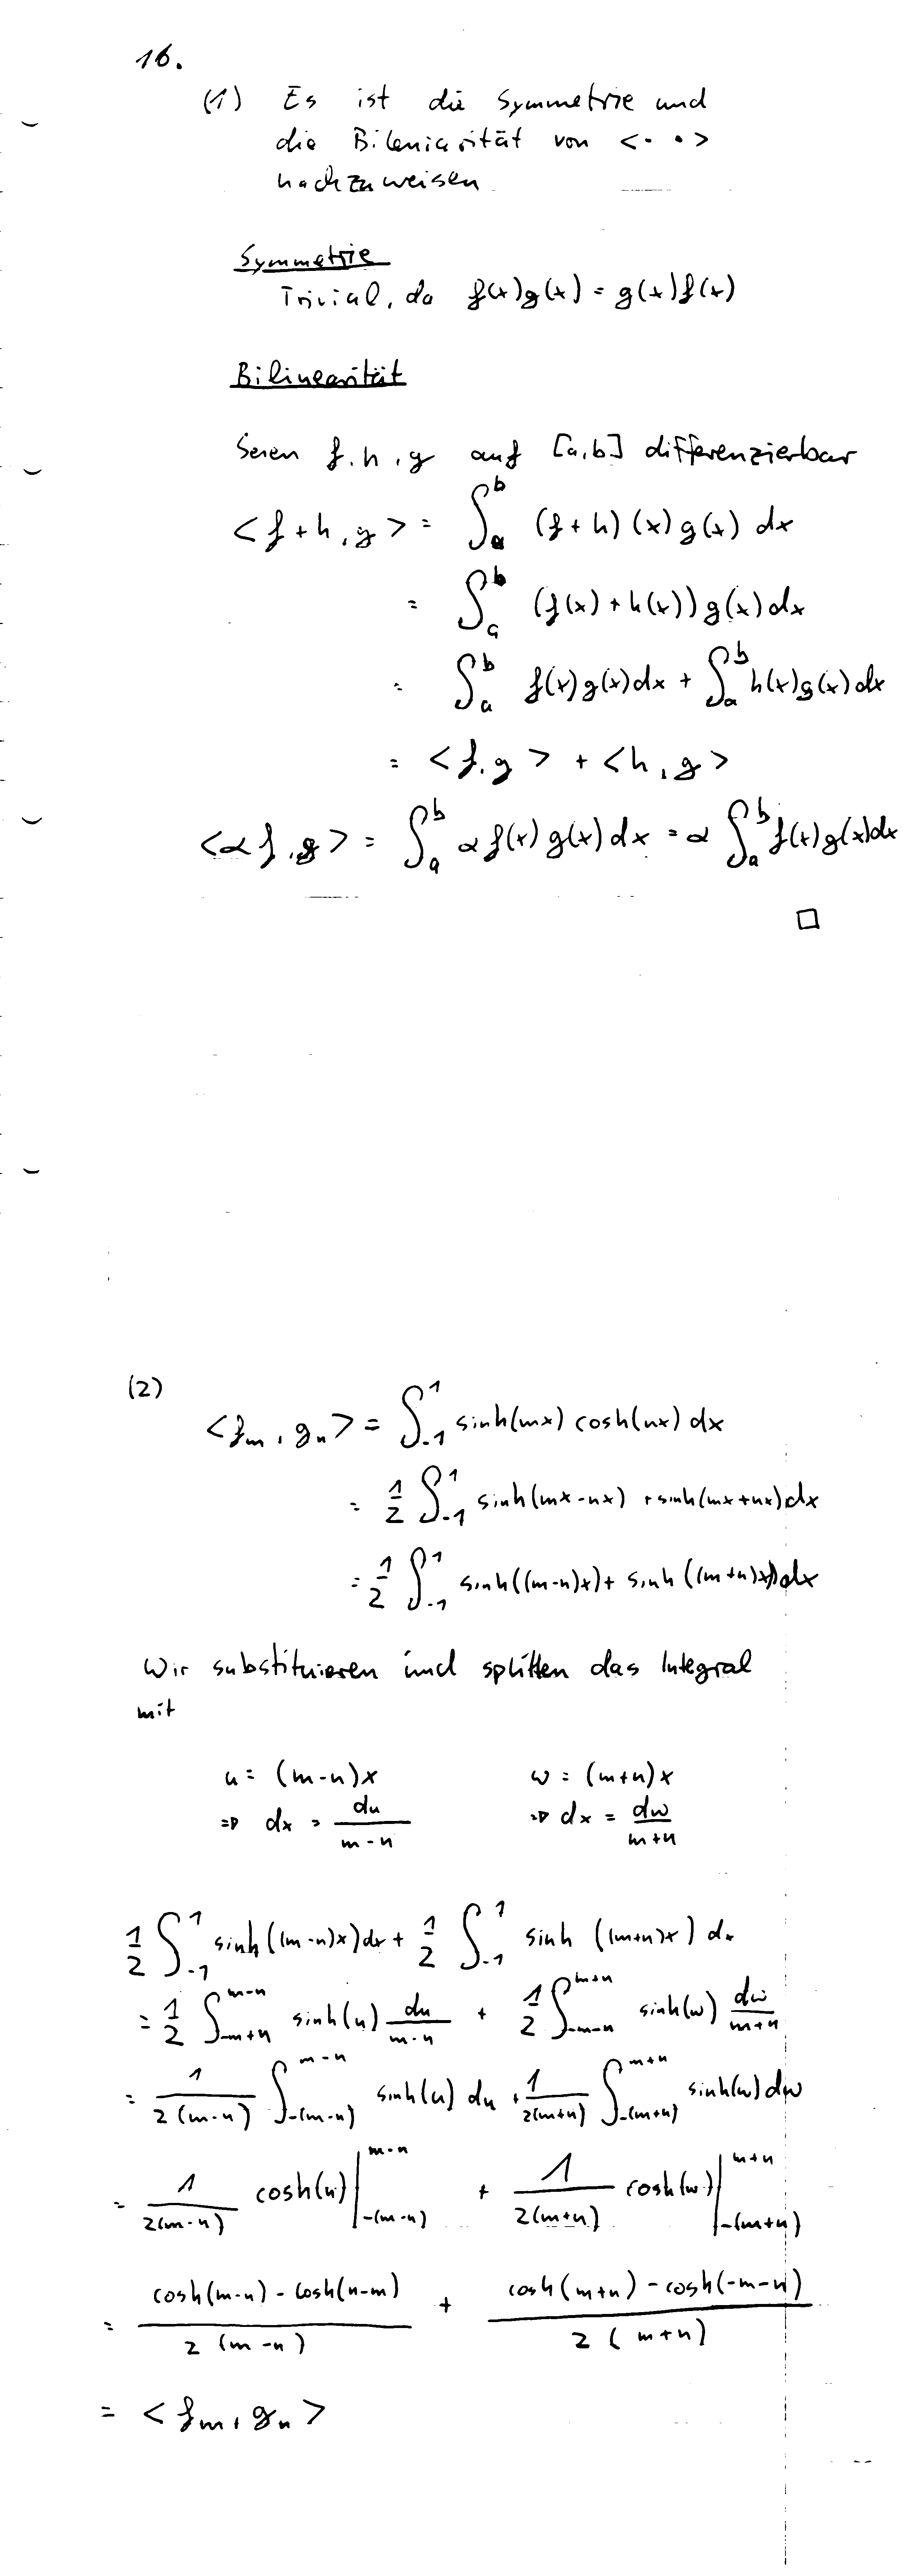 16.
(1) Es ist die Symmetrie und
die Bileniarität von <· ·>
nachzuweisen.
Symmetrie
Trivial, da f(x)g(x) = g(x)f(x)
Bilinearität
Seien f, h, g auf [a,b] differenzierbar
<f+h, g> = ∫_a^b (f+h)(x)g(x) dx
= ∫_a^b (f(x)+h(x))g(x)dx
= ∫_a^b f(x)g(x)dx + ∫_a^b h(x)g(x)dx
= <f,g> + <h,g>
<αf,g> = ∫_a^b αf(x)g(x)dx = α ∫_a^b f(x)g(x)dx
□
(2)
<f_m, g_n> = ∫_-1^1 sinh(mx) cosh(nx) dx
= 1/2 ∫_-1^1 sinh(mx-nx) + sinh(mx+nx)dx
= 1/2 ∫_-1^1 sinh((m-n)x) + sinh((m+n)x)dx
Wir substituieren und splitten das Integral
mit
u = (m-n)x w = (m+n)x
⇒ dx = du/(m-n) ⇒ dx = dw/(m+n)
1/2 ∫_-1^1 sinh((m-n)x)dx + 1/2 ∫_-1^1 sinh((m+n)x) dx
= 1/2 ∫_-m+n^m-n sinh(u) du/(m-n) + 1/2 ∫_-m-n^m+n sinh(w) dw/(m+n)
= 1/(2(m-n)) ∫_-(m-n)^m-n sinh(u) du + 1/(2(m+n)) ∫_-(m+n)^m+n sinh(w)dw
= 1/(2(m-n)) cosh(u)|_-(m-n)^m-n + 1/(2(m+n)) cosh(w)|_-(m+n)^m+n
= (cosh(m-n) - cosh(n-m))/(2(m-n)) + (cosh(m+n) - cosh(-m-n))/(2(m+n))
= <f_m, g_n>